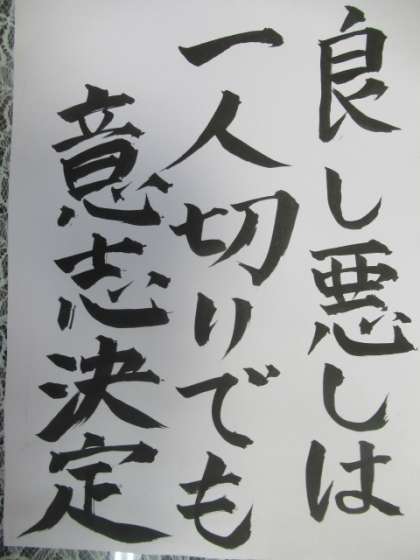 良し悪しは
一人切りでも
意志決定